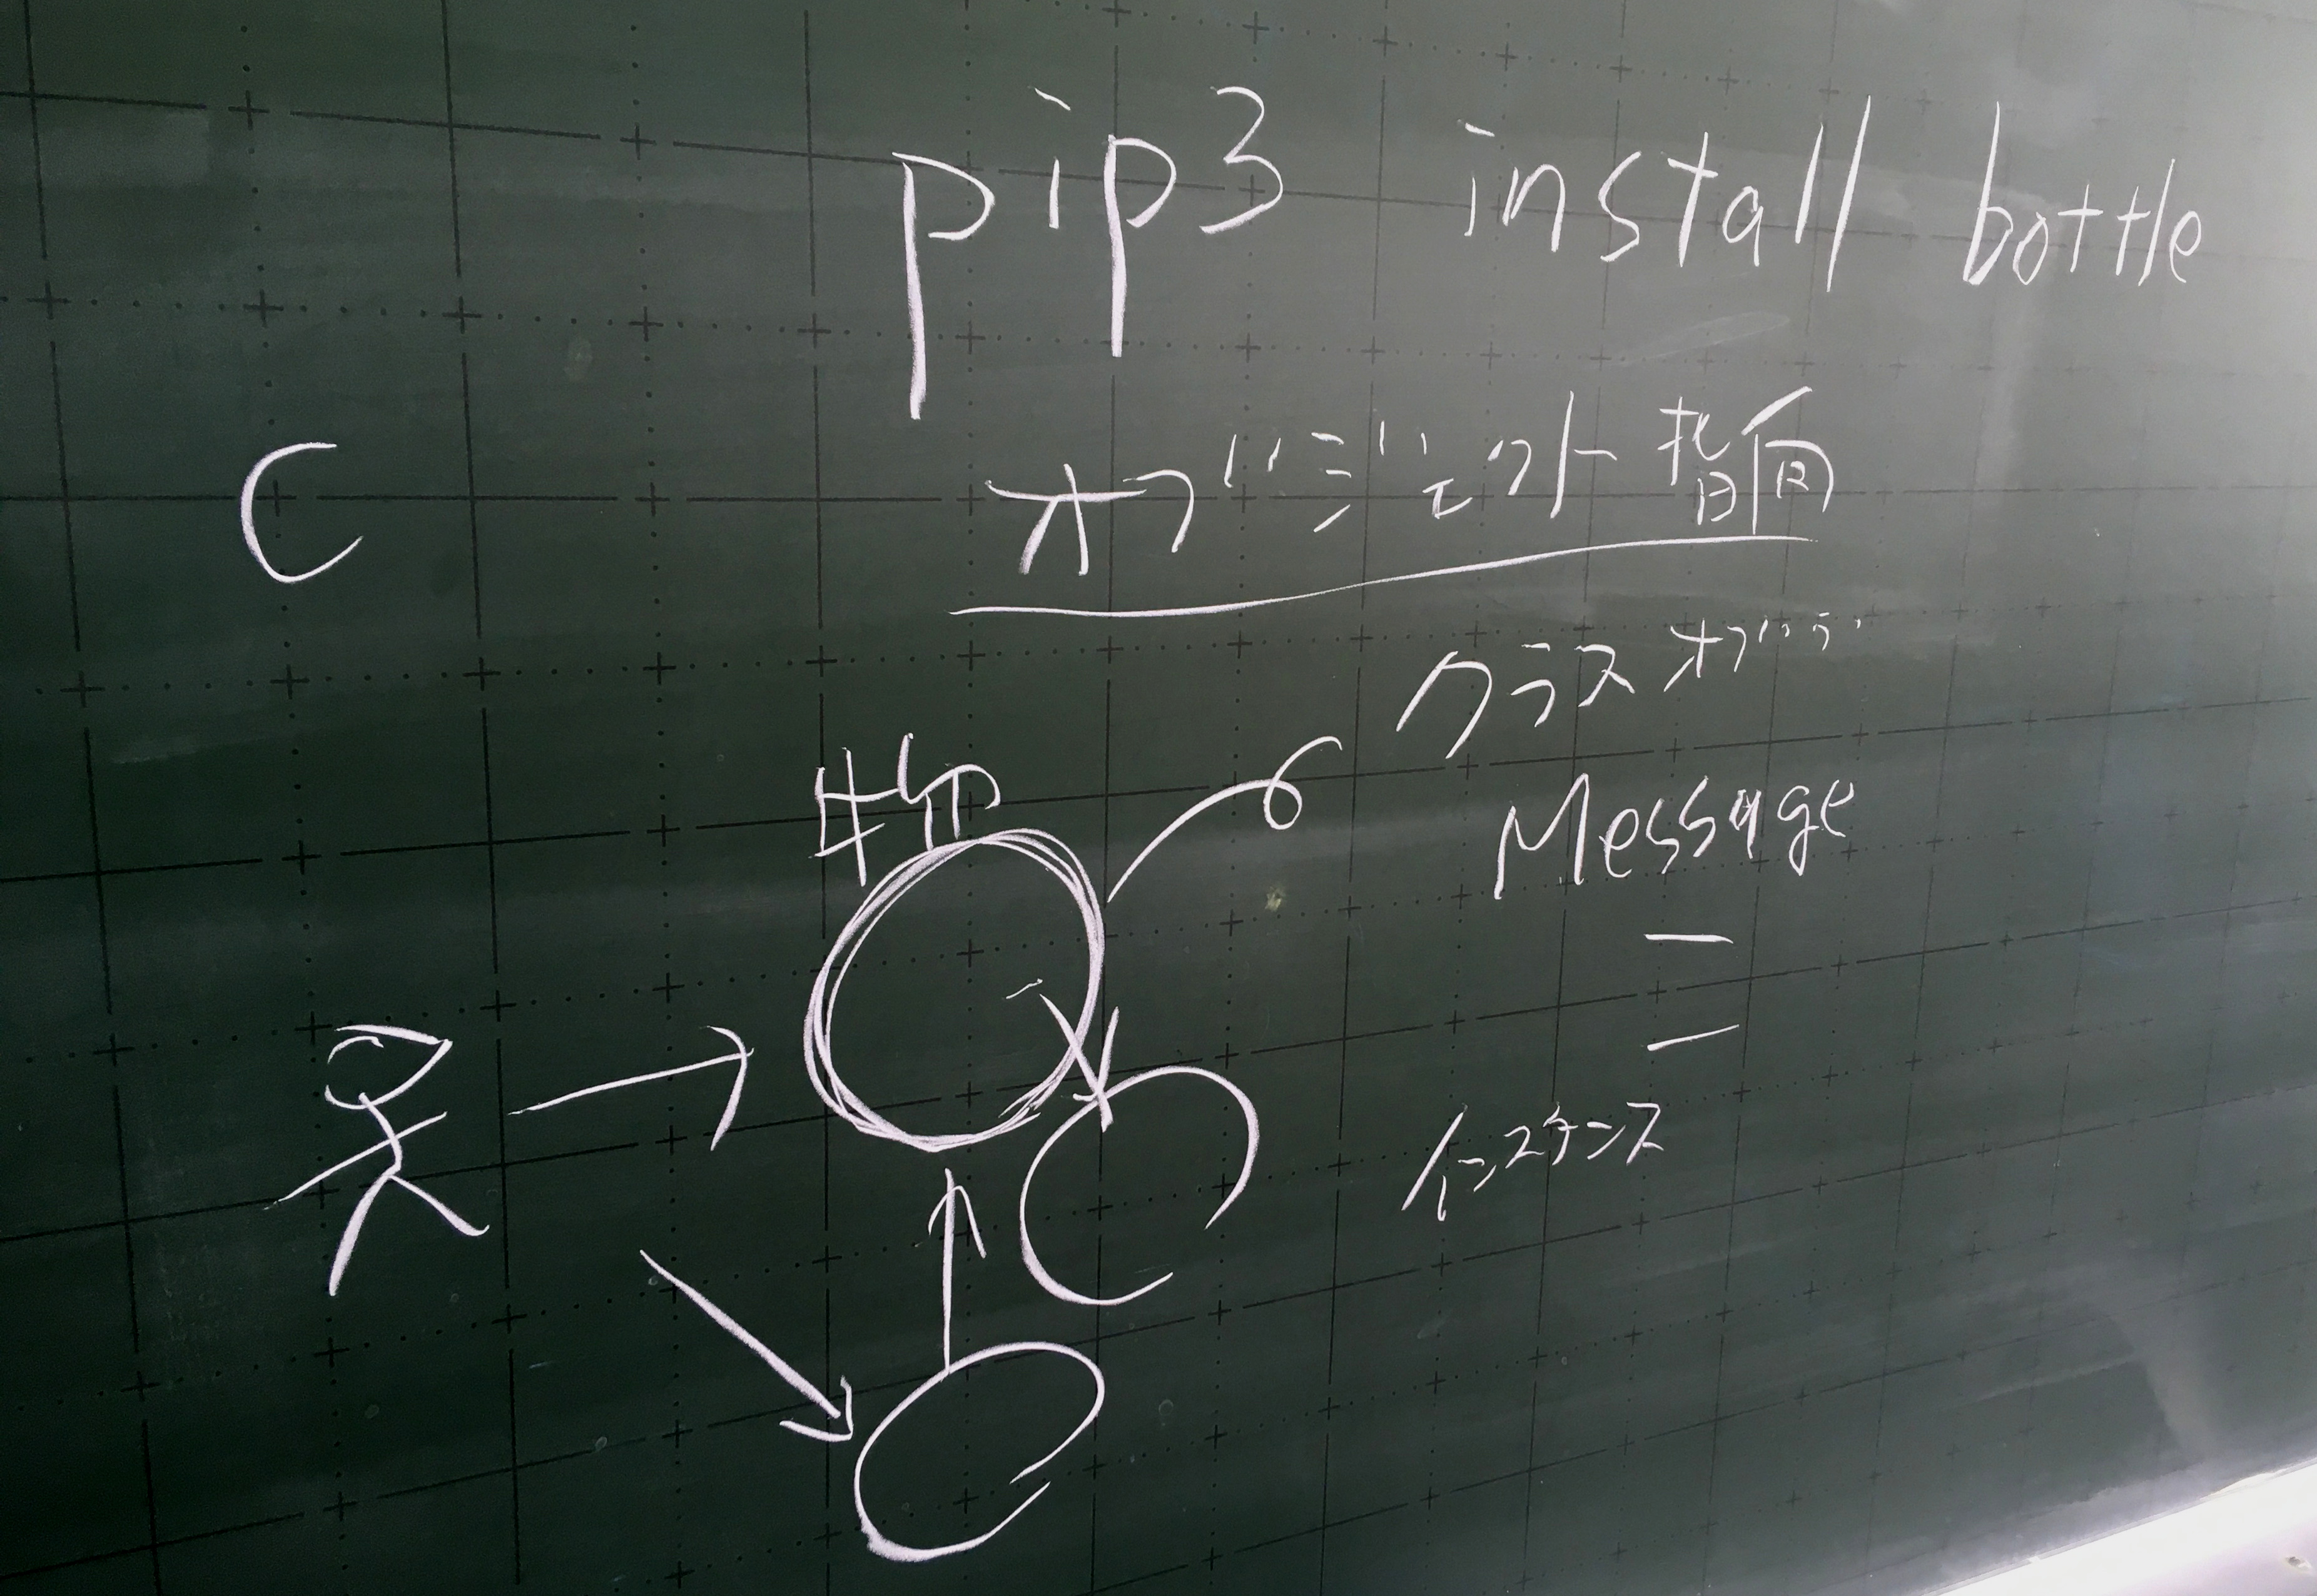 pip3 install bottle
C
オブジェクト指向
クラス オブジ
Message
インスタンス